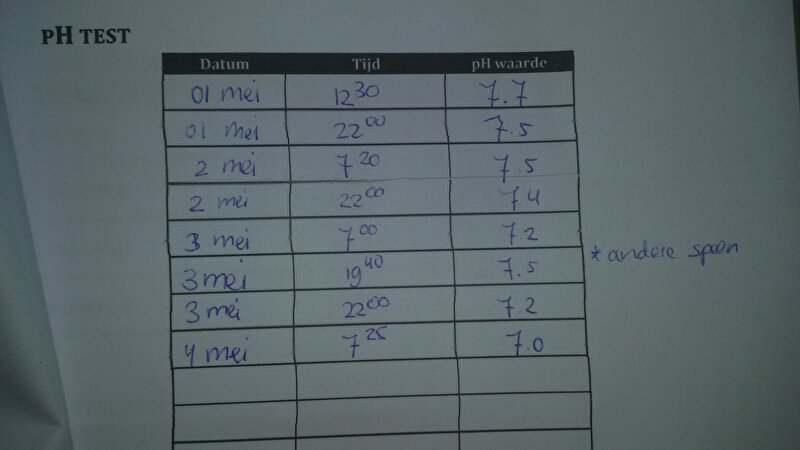 pH TEST
Datum Tijd pH waarde
01 mei 12 30 7.7
01 mei 22 00 7.5
2 mei 7 20 7.5
2 mei 22 00 7.4
3 mei 7 00 7.2
* andere speen
3 mei 19 40 7.5
3 mei 22 00 7.2
4 mei 7 25 7.0